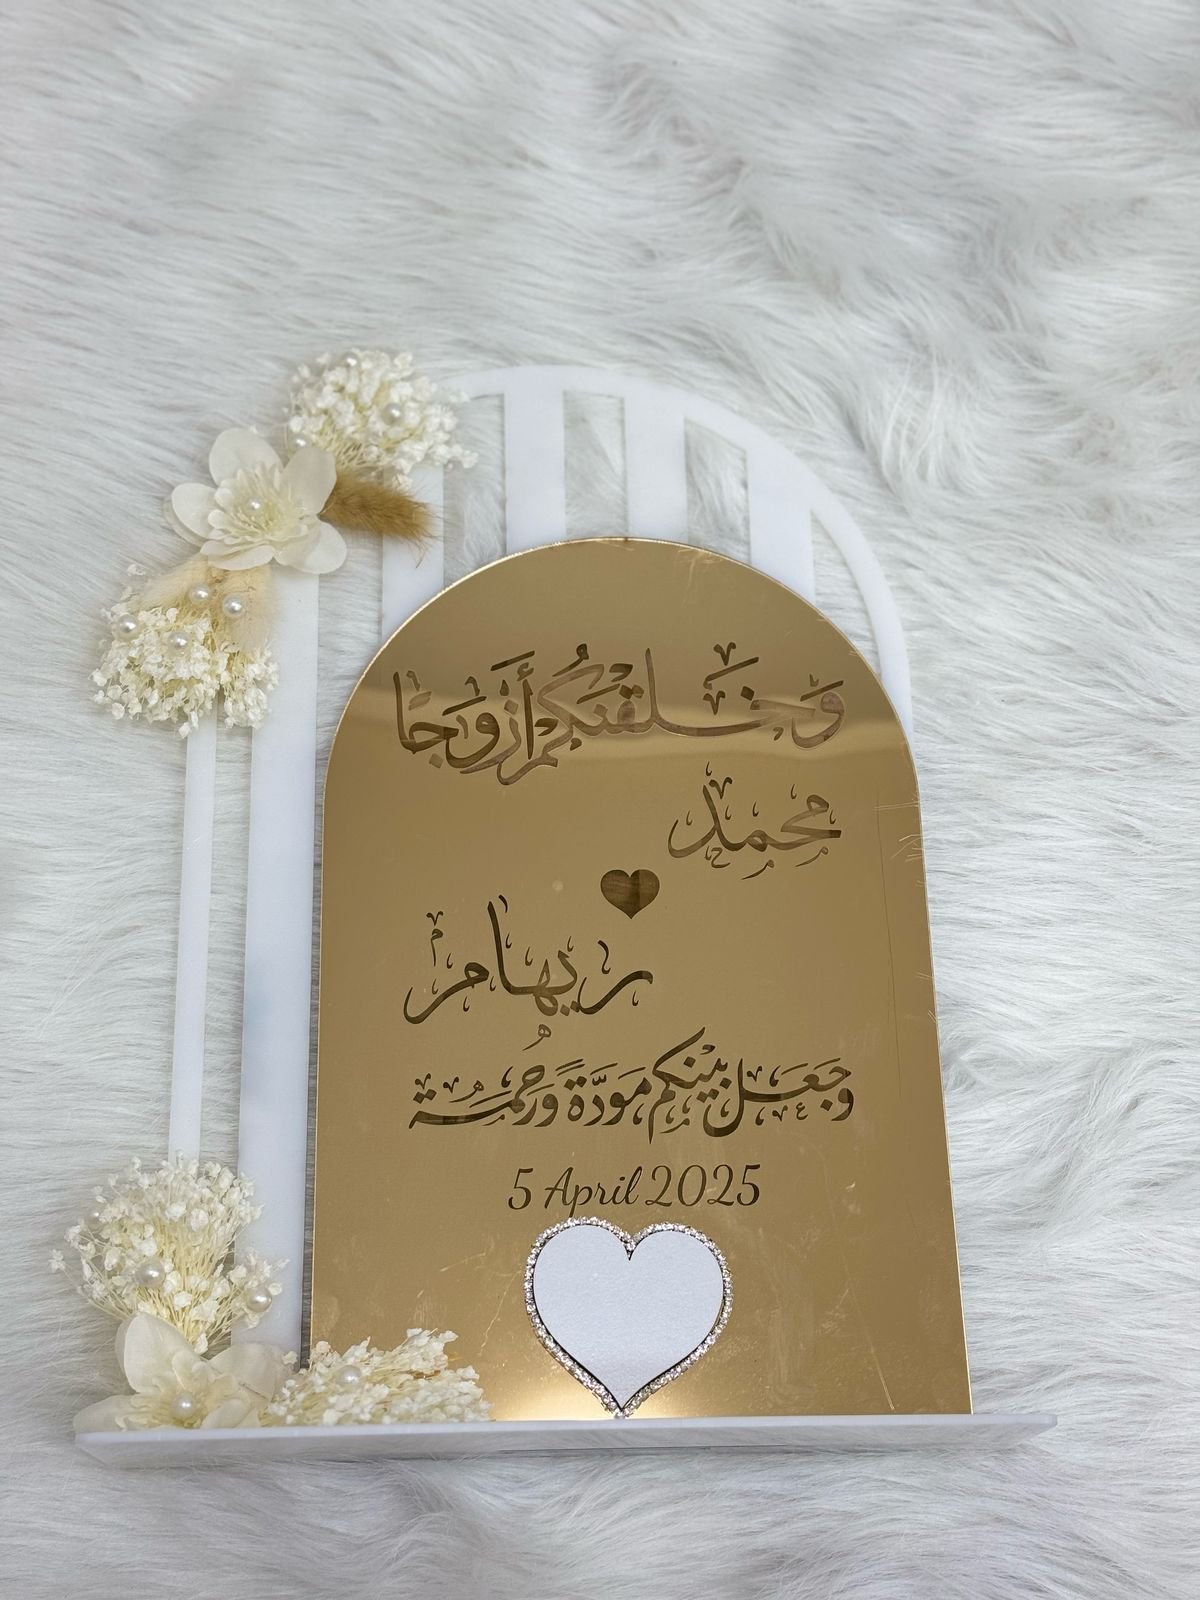 وَخَلَقْنَكُمْ أَزْوَجًا
محمد
ريهام
وَجَعَلَ بَيْنَكُم مَّوَدَّةً وَرَحْمَةً
5 April 2025